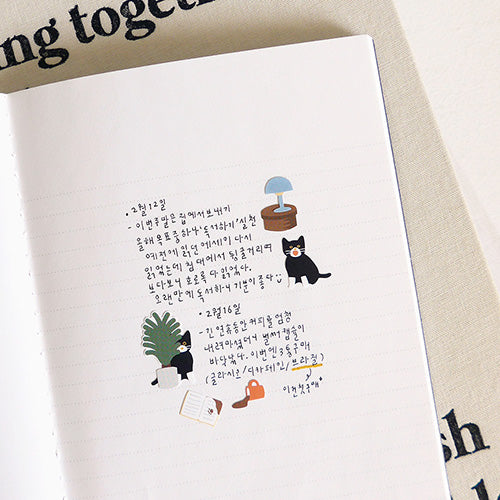 ng together
• 2월 12일
- 이번주말은 집에서 보내기
올해 목표중 하나 '독서하기' 실천
예전에 읽던 에세이 다시
읽었는데 침대에서 뒹굴거리며
보다보니 호로록 다 읽었다.
오랜만에 독서하니 기분이 좋다
• 2월 16일
- 긴 연휴동안 커피를 엄청
내려마셨더니 벌써 캡슐이
바닥났다. 이번엔 3통 구매
(글라시오/디카페인/브라질)
이건 첫구매
sh